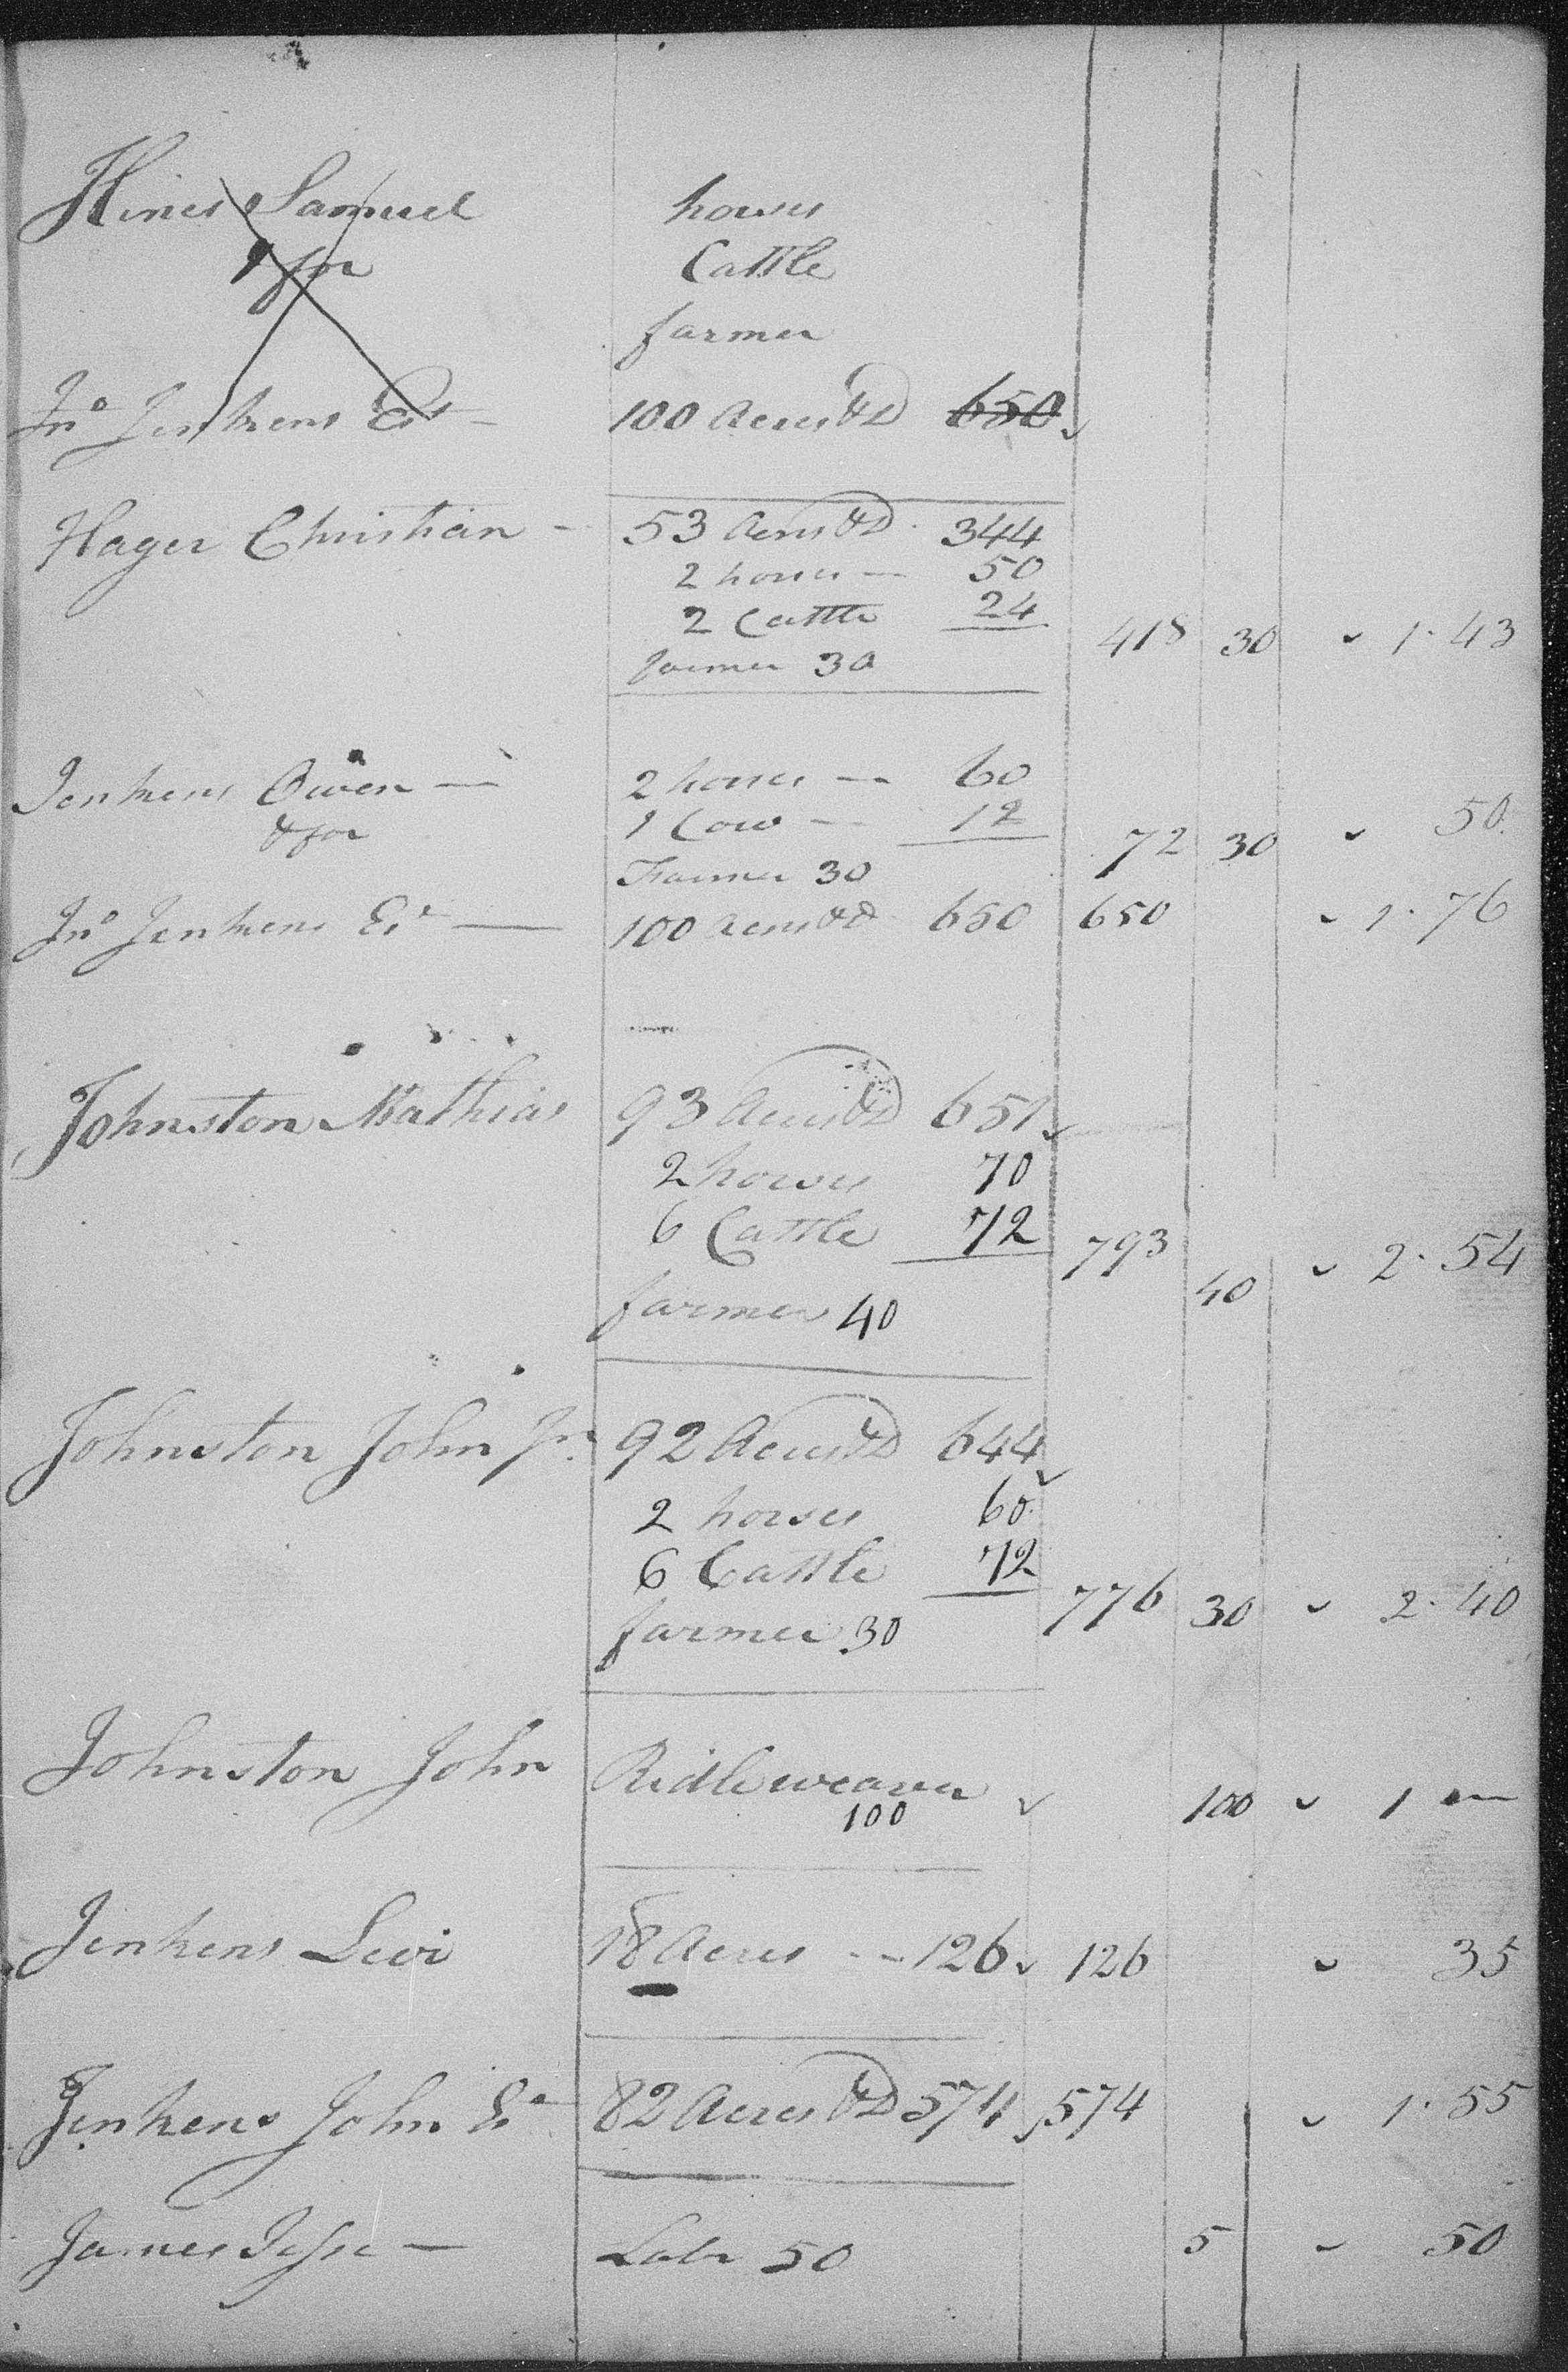 Hines Samuel houses
& for Cattle
farmer
Jno Jenkens Est 100 Acres &D 650
Hager Christian - 53 Acres &D 344
2 horses - 50
2 Cattle 24 418 30 1.43
farmer 30
Jenkens Owen - 2 horses - 60
& for 1 Cow - 12 72 30 50
Farmer 30
Jno Jenkens Es - 100 acres &d 650 650 1.76
Johnston Mathias 93 Acres &D 651
2 horses 70
6 Cattle 72 793 40 2.54
farmer 40
Johnston John Jr. 92 Acres &D 644
2 horses 60
6 Cattle 72 776 30 2.40
farmer 30
Johnston John Ridleweaver 100 1 —
100
Jenkens Levi 18 Acres - - 126 126 35
Jenkens John Es 82 Acres &D 574 574 1.55
James Jesse - Labr 50 5 50